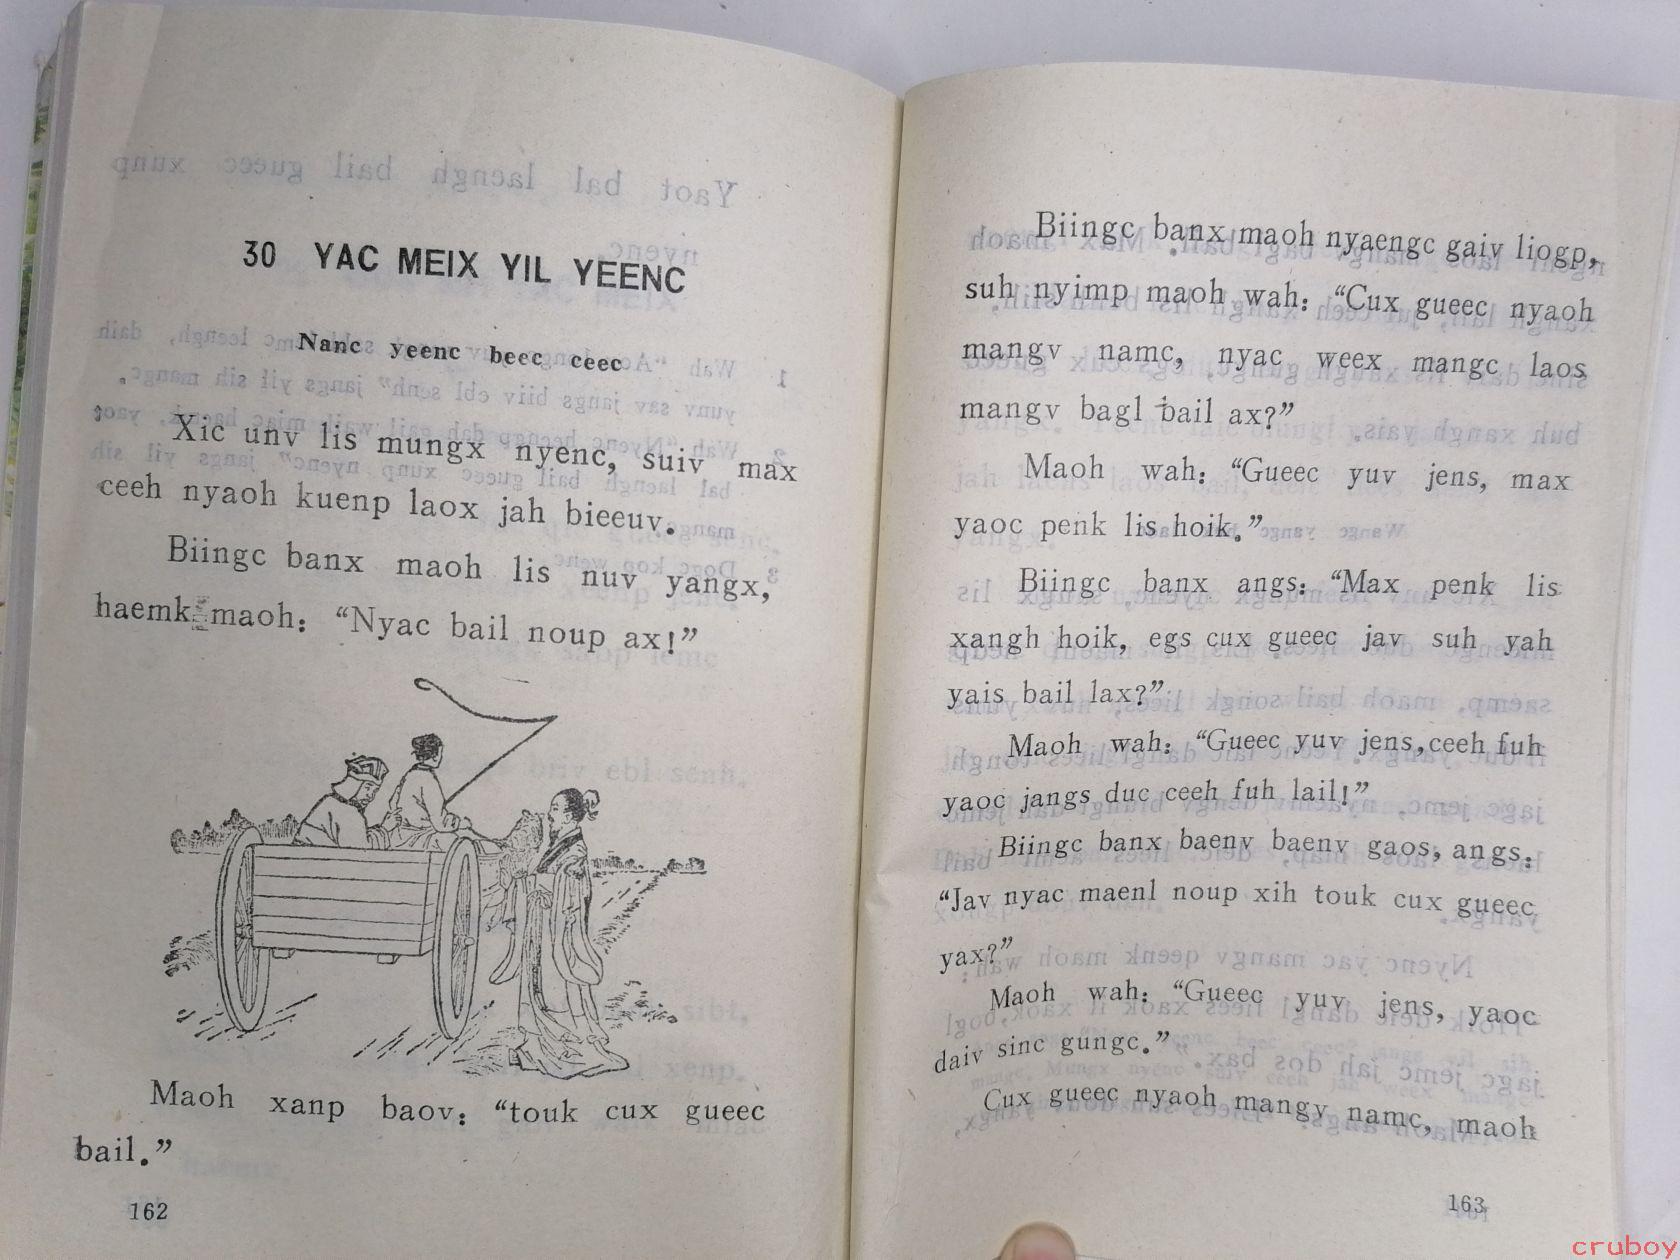 30 YAC MEIX YIL YEENC
Nanc yeenc beec ceec
Xic unv lis mungx nyenc, suiv max
ceeh nyaoh kuenp laox jah bieeuv.
Biingc banx maoh lis nuv yangx,
haemk maoh: “Nyac bail noup ax!”
Maoh xanp baov: “touk cux gueec
bail.”
162
Biingc banx maoh nyaengc gaiv liogp,
suh nyimp maoh wah: “Cux gueec nyaoh
mangv namc, nyac weex mangc laos
mangv bagl bail ax?”
Maoh wah: “Gueec yuv jens, max
yaoc penk lis hoik.”
Biingc banx angs: “Max penk lis
xangh hoik, egs cux gueec jav suh yah
yais bail lax?”
Maoh wah: “Gueec yuv jens, ceeh fuh
yaoc jangs duc ceeh fuh lail!”
Biingc banx baenv baenv gaos, angs:
“Jav nyac maenl noup xih touk cux gueec
yax?”
Maoh wah: “Gueec yuv jens, yaoc
daiv sinc gungc.”
Cux gueec nyaoh mangv namc, maoh
163
cruboy